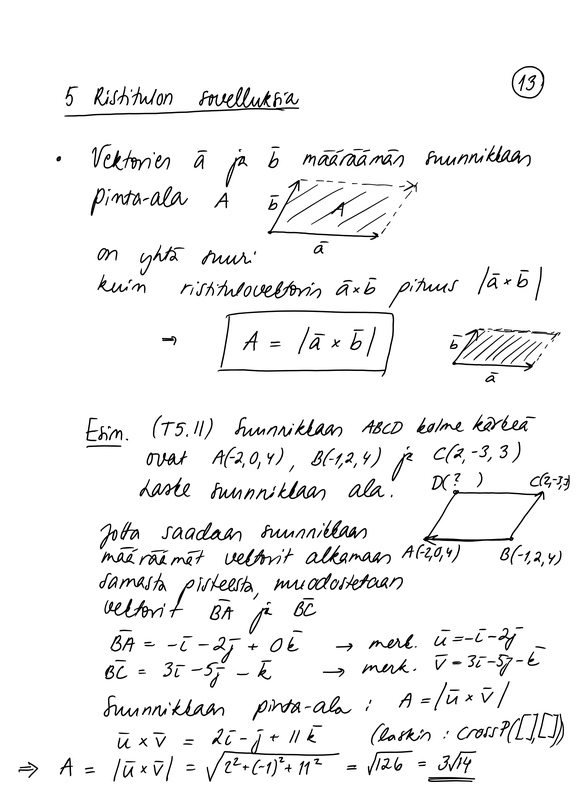 13
5 Ristitulon sovelluksia
• Vektorien a̅ ja b̅ määräämän suunnikkaan
pinta-ala A
b̅
A
a̅
on yhtä suuri
kuin ristitulovektorin a̅×b̅ pituus |a̅×b̅|
→ A = |a̅ × b̅|
b̅
a̅
Esim. (T5.11) Suunnikkaan ABCD kolme kärkeä
ovat A(-2,0,4), B(-1,2,4) ja C(2,-3,3)
Laske suunnikkaan ala.
D(? ) C(2,-3,3)
Jotta saadaan suunnikkaan
määräämät vektorit alkamaan A(-2,0,4) B(-1,2,4)
samasta pisteestä, muodostetaan
vektorit B̅A̅ ja B̅C̅
B̅A̅ = -i̅ - 2j̅ + 0k̅ → merk. u̅=-i̅-2j̅
B̅C̅ = 3i̅ - 5j̅ - k̅ → merk. v̅=3i̅-5j̅-k̅
Suunnikkaan pinta-ala : A = |u̅ × v̅|
u̅ × v̅ = 2i̅ - j̅ + 11k̅ (laskin : crossP([],[])
⇒ A = |u̅ × v̅| = √(2²+(-1)²+11²) = √126 = 3√14